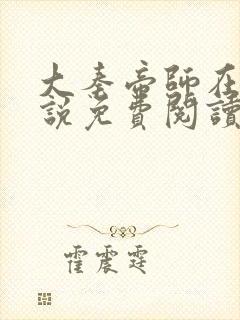 大秦帝師在
說免費閱讀
霍震霆